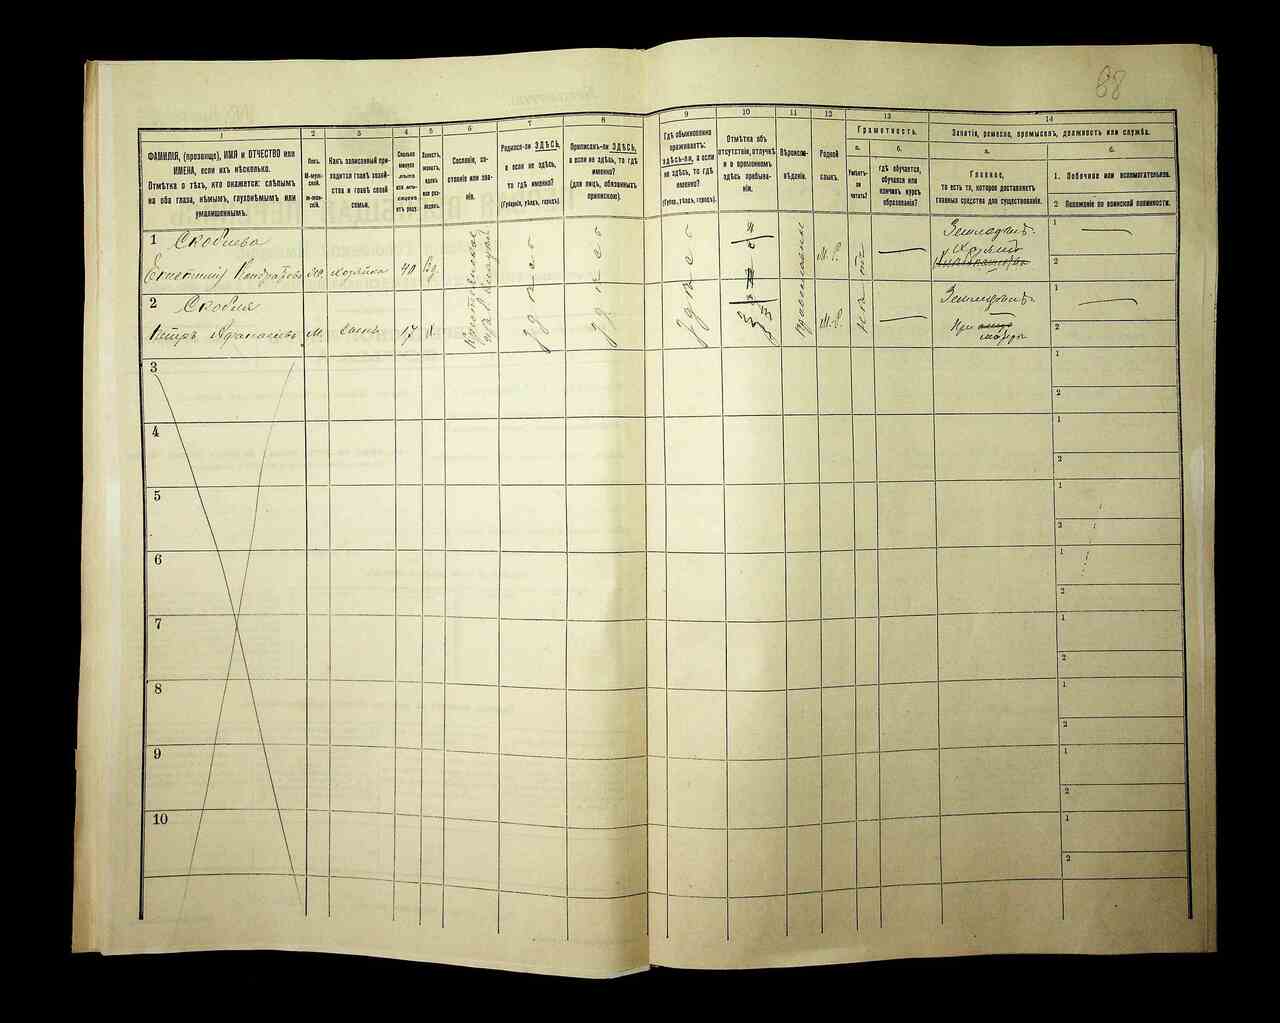 88
1
2
3
4
5
6
7
8
9
10
11
12
13
14
ФАМИЛІЯ, (прозвище), ИМЯ и ОТЧЕСТВО или
ИМЕНА, если ихъ нѣсколько.
Отмѣтка о тѣхъ, кто окажется: слѣпымъ
на оба глаза, нѣмымъ, глухонѣмымъ или
умалишеннымъ.
Полъ.
М-муж-
ской.
ж-жен-
скій.
Какъ записанный при-
ходится главѣ хозяй-
ства и главѣ своей
семьи.
Сколько
минуло
лѣтъ
или мѣ-
сяцевъ
отъ роду.
Холостъ,
женатъ,
вдовъ
или раз-
веденъ.
Сословіе, со-
стояніе или зва-
ніе.
Родился-ли ЗДѢСЬ,
а если не здѣсь,
то гдѣ именно?
(Губернія, уѣздъ, городъ).
Приписанъ-ли ЗДѢСЬ,
а если не здѣсь, то гдѣ
именно?
(для лицъ, обязанныхъ
припискою).
Гдѣ обыкновенно
проживаетъ:
ЗДѢСЬ-ли, а если
не здѣсь, то гдѣ
именно?
(Губер., уѣздъ, городъ).
Отмѣтка объ
отсутствіи, отлучкѣ
и о временномъ
здѣсь пребыва-
ніи.
Вѣроиспо-
вѣданіе.
Родной
языкъ.
Грамотность.
а.
Умѣетъ-
ли
читать?
б.
гдѣ обучается,
обучался или
кончилъ курсъ
образованія?
Занятіе, ремесло, промыселъ, должность или служба.
а.
Главное,
то есть то, которое доставляетъ
главныя средства для существованія.
б.
1. Побочное или вспомогательное.
2 Положеніе по воинской повинности.
1 Скоблева
Ж. Хозяйка 40 Вд. здѣсь здѣсь здѣсь М.Р. нѣтъ
1
2
2 Скобля
Петръ Афанасьевъ М. сынъ 17 Х. здѣсь здѣсь здѣсь М.Р. При матери
1
2
3
1
2
4
1
2
5
1
2
6
1
2
7
1
2
8
1
2
9
1
2
10
1
2